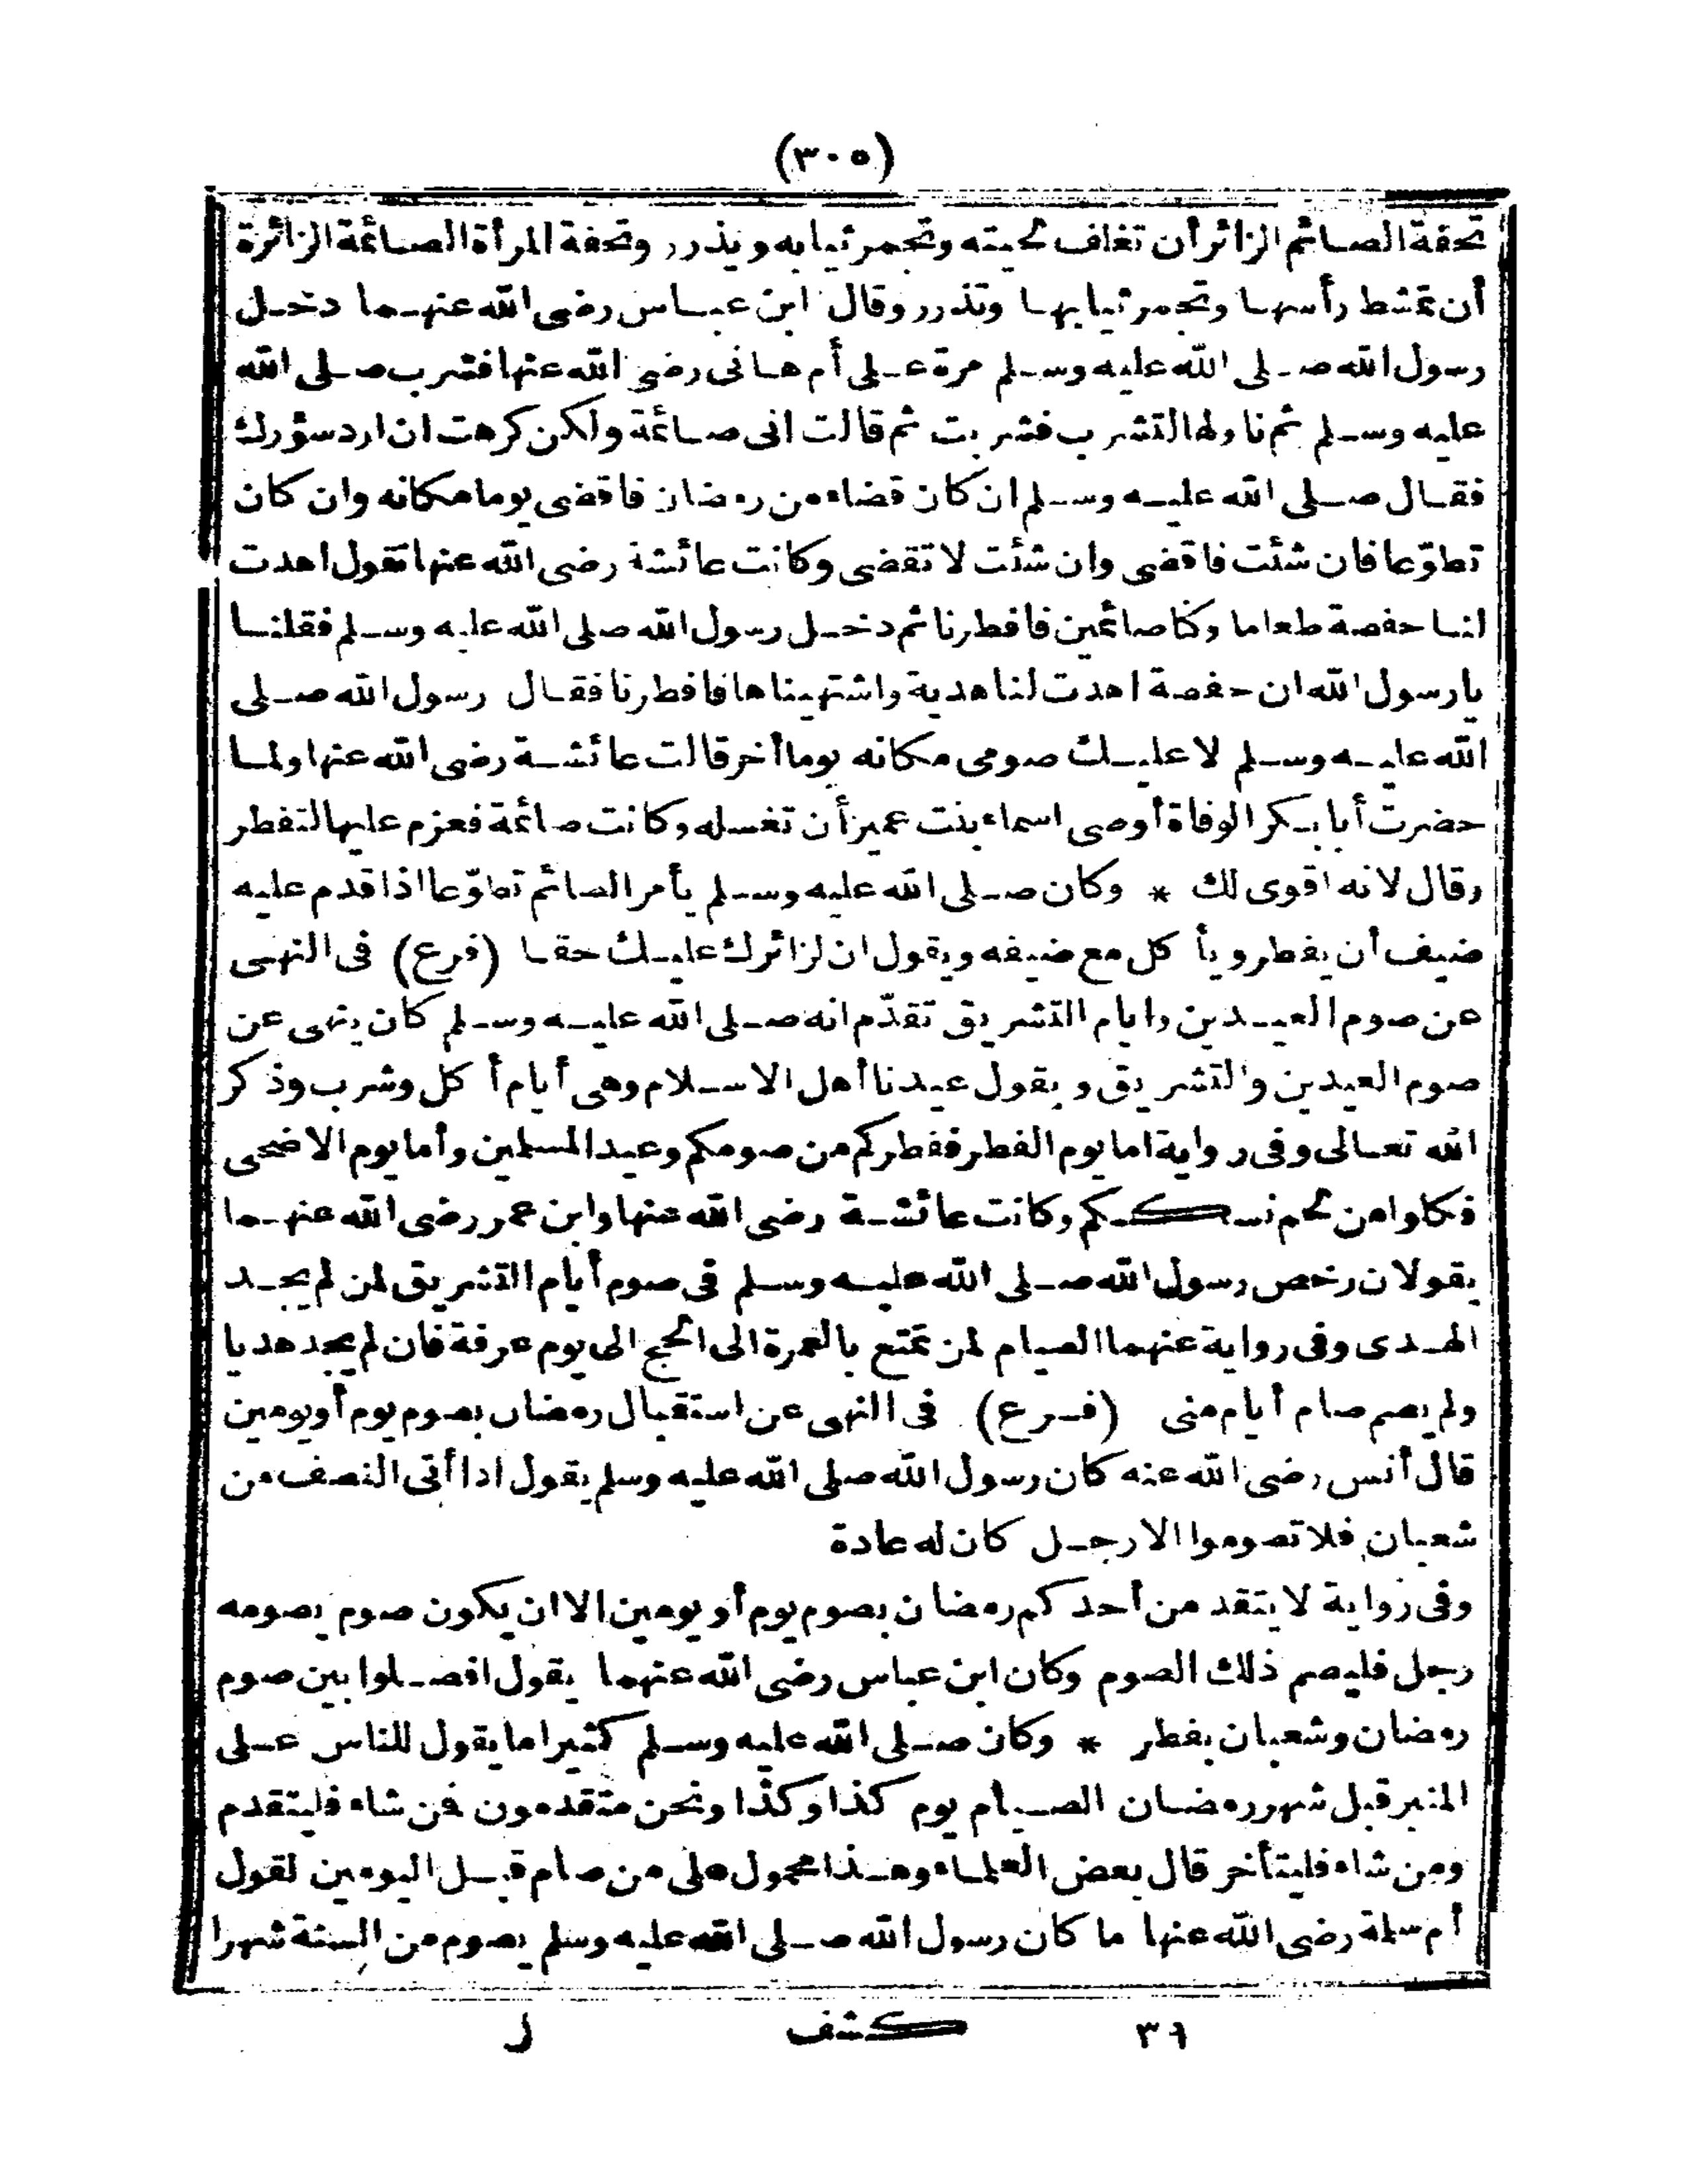 (٣٠٥)
تحفة الصائم الزائر أن تغلف لحيته وتجمر ثيابه ويذرر وتحفة المرأة الصائمة الزائرة
أن تمشط رأسها وتجمر ثيابها وتذرر وقال ابن عباس رضى الله عنهما دخل
رسول الله صلى الله عليه وسلم مرة على أم هانى رضى الله عنها فشرب صلى الله
عليه وسلم ثم ناولها لتشرب فشربت ثم قالت انى صائمة ولكن كرهت ان ارد سؤرك
فقال صلى الله عليه وسلم ان كان قضاء من رمضان فاقضى يوما مكانه وان كان
تطوّعا فان شئت فاقضى وان شئت لا تقضى وكانت عائشة رضى الله عنها تقول اهدت
لنا حفصة طعاما وكنا صائمين فافطرنا ثم دخل رسول الله صلى الله عليه وسلم فقلنا
يارسول الله ان حفصة اهدت لنا هدية واشتهيناها فافطرنا فقال رسول الله صلى
الله عليه وسلم لا عليك صومى مكانه يوما أخر قالت عائشة رضى الله عنها ولما
حضرت أبا بكر الوفاة أوصى اسماء بنت عميز أن تغسله وكانت صائمة فعزم عليها لتفطر
وقال لانه اقوى لك * وكان صلى الله عليه وسلم يأمر الصائم تطوّعا اذا قدم عليه
ضيف أن يفطر ويأكل مع ضيفه ويقول ان لزائرك عليك حقا (فرع) فى النهى
عن صوم العيدين وايام التشريق تقدّم انه صلى الله عليه وسلم كان ينهى عن
صوم العيدين والتشريق ويقول عيدنا أهل الاسلام وهى أيام أكل وشرب وذكر
الله تعالى وفى رواية اما يوم الفطر ففطركم من صومكم وعيد المسلمين وأما يوم الاضحى
فكلوا من لحم نسككم وكانت عائشة رضى الله عنها وابن عمر رضى الله عنهما
يقولان رخص رسول الله صلى الله عليه وسلم فى صوم أيام التشريق لمن لم يجد
الهدى وفى رواية عنهما الصيام لمن تمتع بالعمرة الى الحج الى يوم عرفة فان لم يجد هديا
ولم يصم صام أيام منى (فرع) فى النهى عن استقبال رمضان بصوم يوم أو يومين
قال أنس رضى الله عنه كان رسول الله صلى الله عليه وسلم يقول اذا أتى النصف من
شعبان فلا تصوموا الا رجل كان له عادة
وفى رواية لا يتقدمن أحدكم رمضان بصوم يوم أو يومين الا ان يكون صوم يصومه
رجل فليصم ذلك الصوم وكان ابن عباس رضى الله عنهما يقول افصلوا بين صوم
رمضان وشعبان بفطر * وكان صلى الله عليه وسلم كثيرا ما يقول للناس على
المنبر قبل شهر رمضان الصيام يوم كذا وكذا ونحن متقدمون فمن شاء فليتقدم
ومن شاء فليتأخر قال بعض العلماء وهذا محمول على من صام قبل اليومين لقول
أم سلمة رضى الله عنها ما كان رسول الله صلى الله عليه وسلم يصوم من السنة شهرا
٣٩ كشف ل